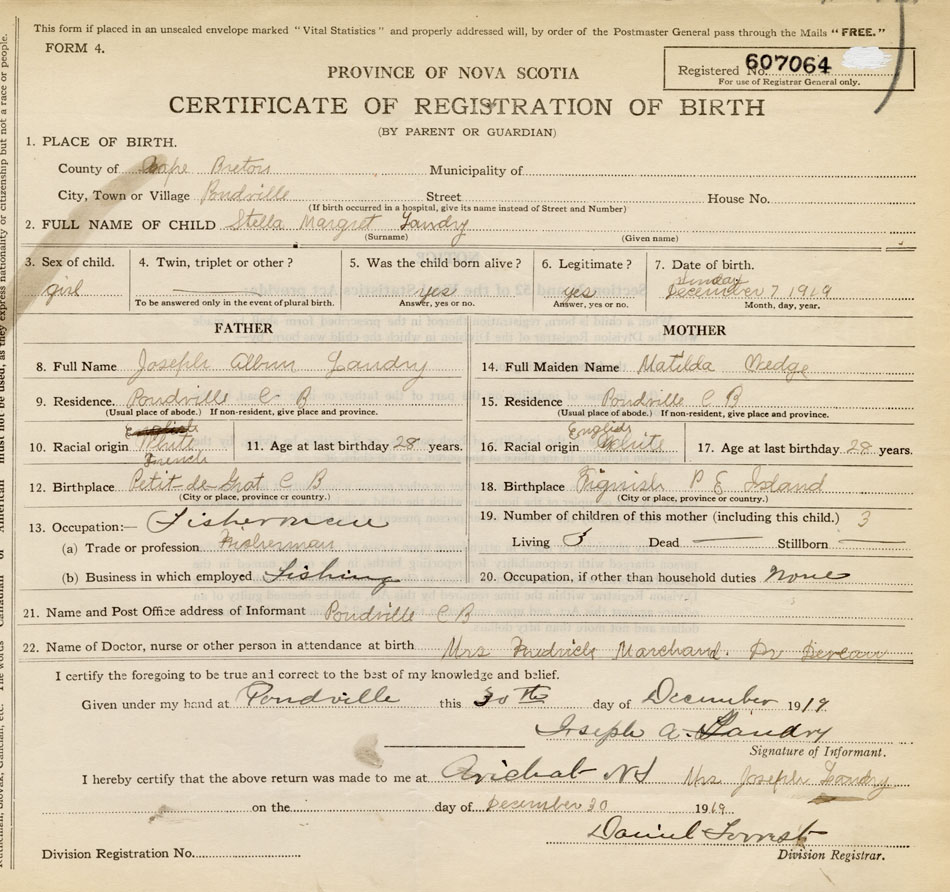 This form if placed in an unsealed envelope marked "Vital Statistics" and properly addressed will, by order of the Postmaster General pass through the Mails "FREE."
FORM 4.
Registered No. 607064
For use of Registrar General only.
PROVINCE OF NOVA SCOTIA
CERTIFICATE OF REGISTRATION OF BIRTH
(BY PARENT OR GUARDIAN)
1. PLACE OF BIRTH.
County of Cape Breton Municipality of
City, Town or Village Pondville Street House No.
(If birth occurred in a hospital, give its name instead of Street and Number)
2. FULL NAME OF CHILD Stella Margret Landry
(Surname) (Given name)
3. Sex of child. 4. Twin, triplet or other? 5. Was the child born alive? 6. Legitimate? 7. Date of birth.
Sunday
girl yes yes December 7 1919
To be answered only in the event of plural birth. Answer, yes or no. Answer, yes or no. Month, day, year.
FATHER MOTHER
8. Full Name Joseph Albun Landry 14. Full Maiden Name Matilda Wedge
9. Residence. Pondville C B 15. Residence Pondville C B
(Usual place of abode.) If non-resident, give place and province. (Usual place of abode.) If non-resident, give place and province.
English English
10. Racial origin White 11. Age at last birthday 28 years. 16. Racial origin White 17. Age at last birthday 28 years.
French
12. Birthplace Petit-de-Grat C B 18. Birthplace Tignish P E Island
(City or place, province or country.) (City or place, province or country.)
13. Occupation:— Fisherman 19. Number of children of this mother (including this child.) 3
(a) Trade or profession Fisherman Living 3 Dead Stillborn
(b) Business in which employed Fishing 20. Occupation, if other than household duties None
21. Name and Post Office address of Informant Pondville C B
22. Name of Doctor, nurse or other person in attendance at birth Mrs Fredrick Marchand. Dr
I certify the foregoing to be true and correct to the best of my knowledge and belief.
Given under my hand at Pondville this 30th day of December 1919
Joseph A. Landry
Signature of Informant.
I hereby certify that the above return was made to me at Arichat NS Mrs Joseph Landry
on the day of December 30 1919.
Daniel Forrest
Division Registration No. Division Registrar.